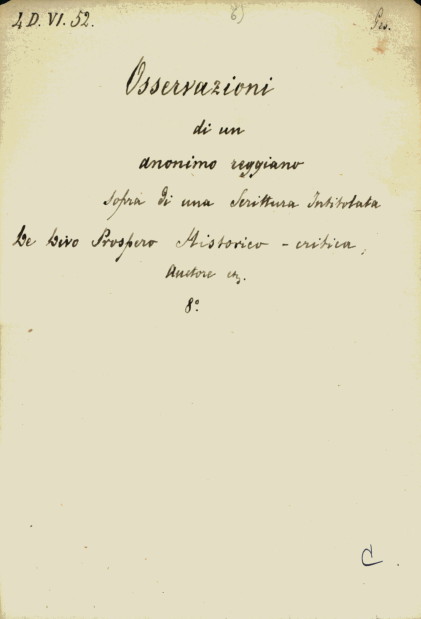 4 D. VI. 52.
6)
Ges.
Osservazioni
di un
anonimo reggiano
sopra di una Scrittura Intitolata
De Divo Prospero Historico - critica,
Auctore etz.
8°.
C